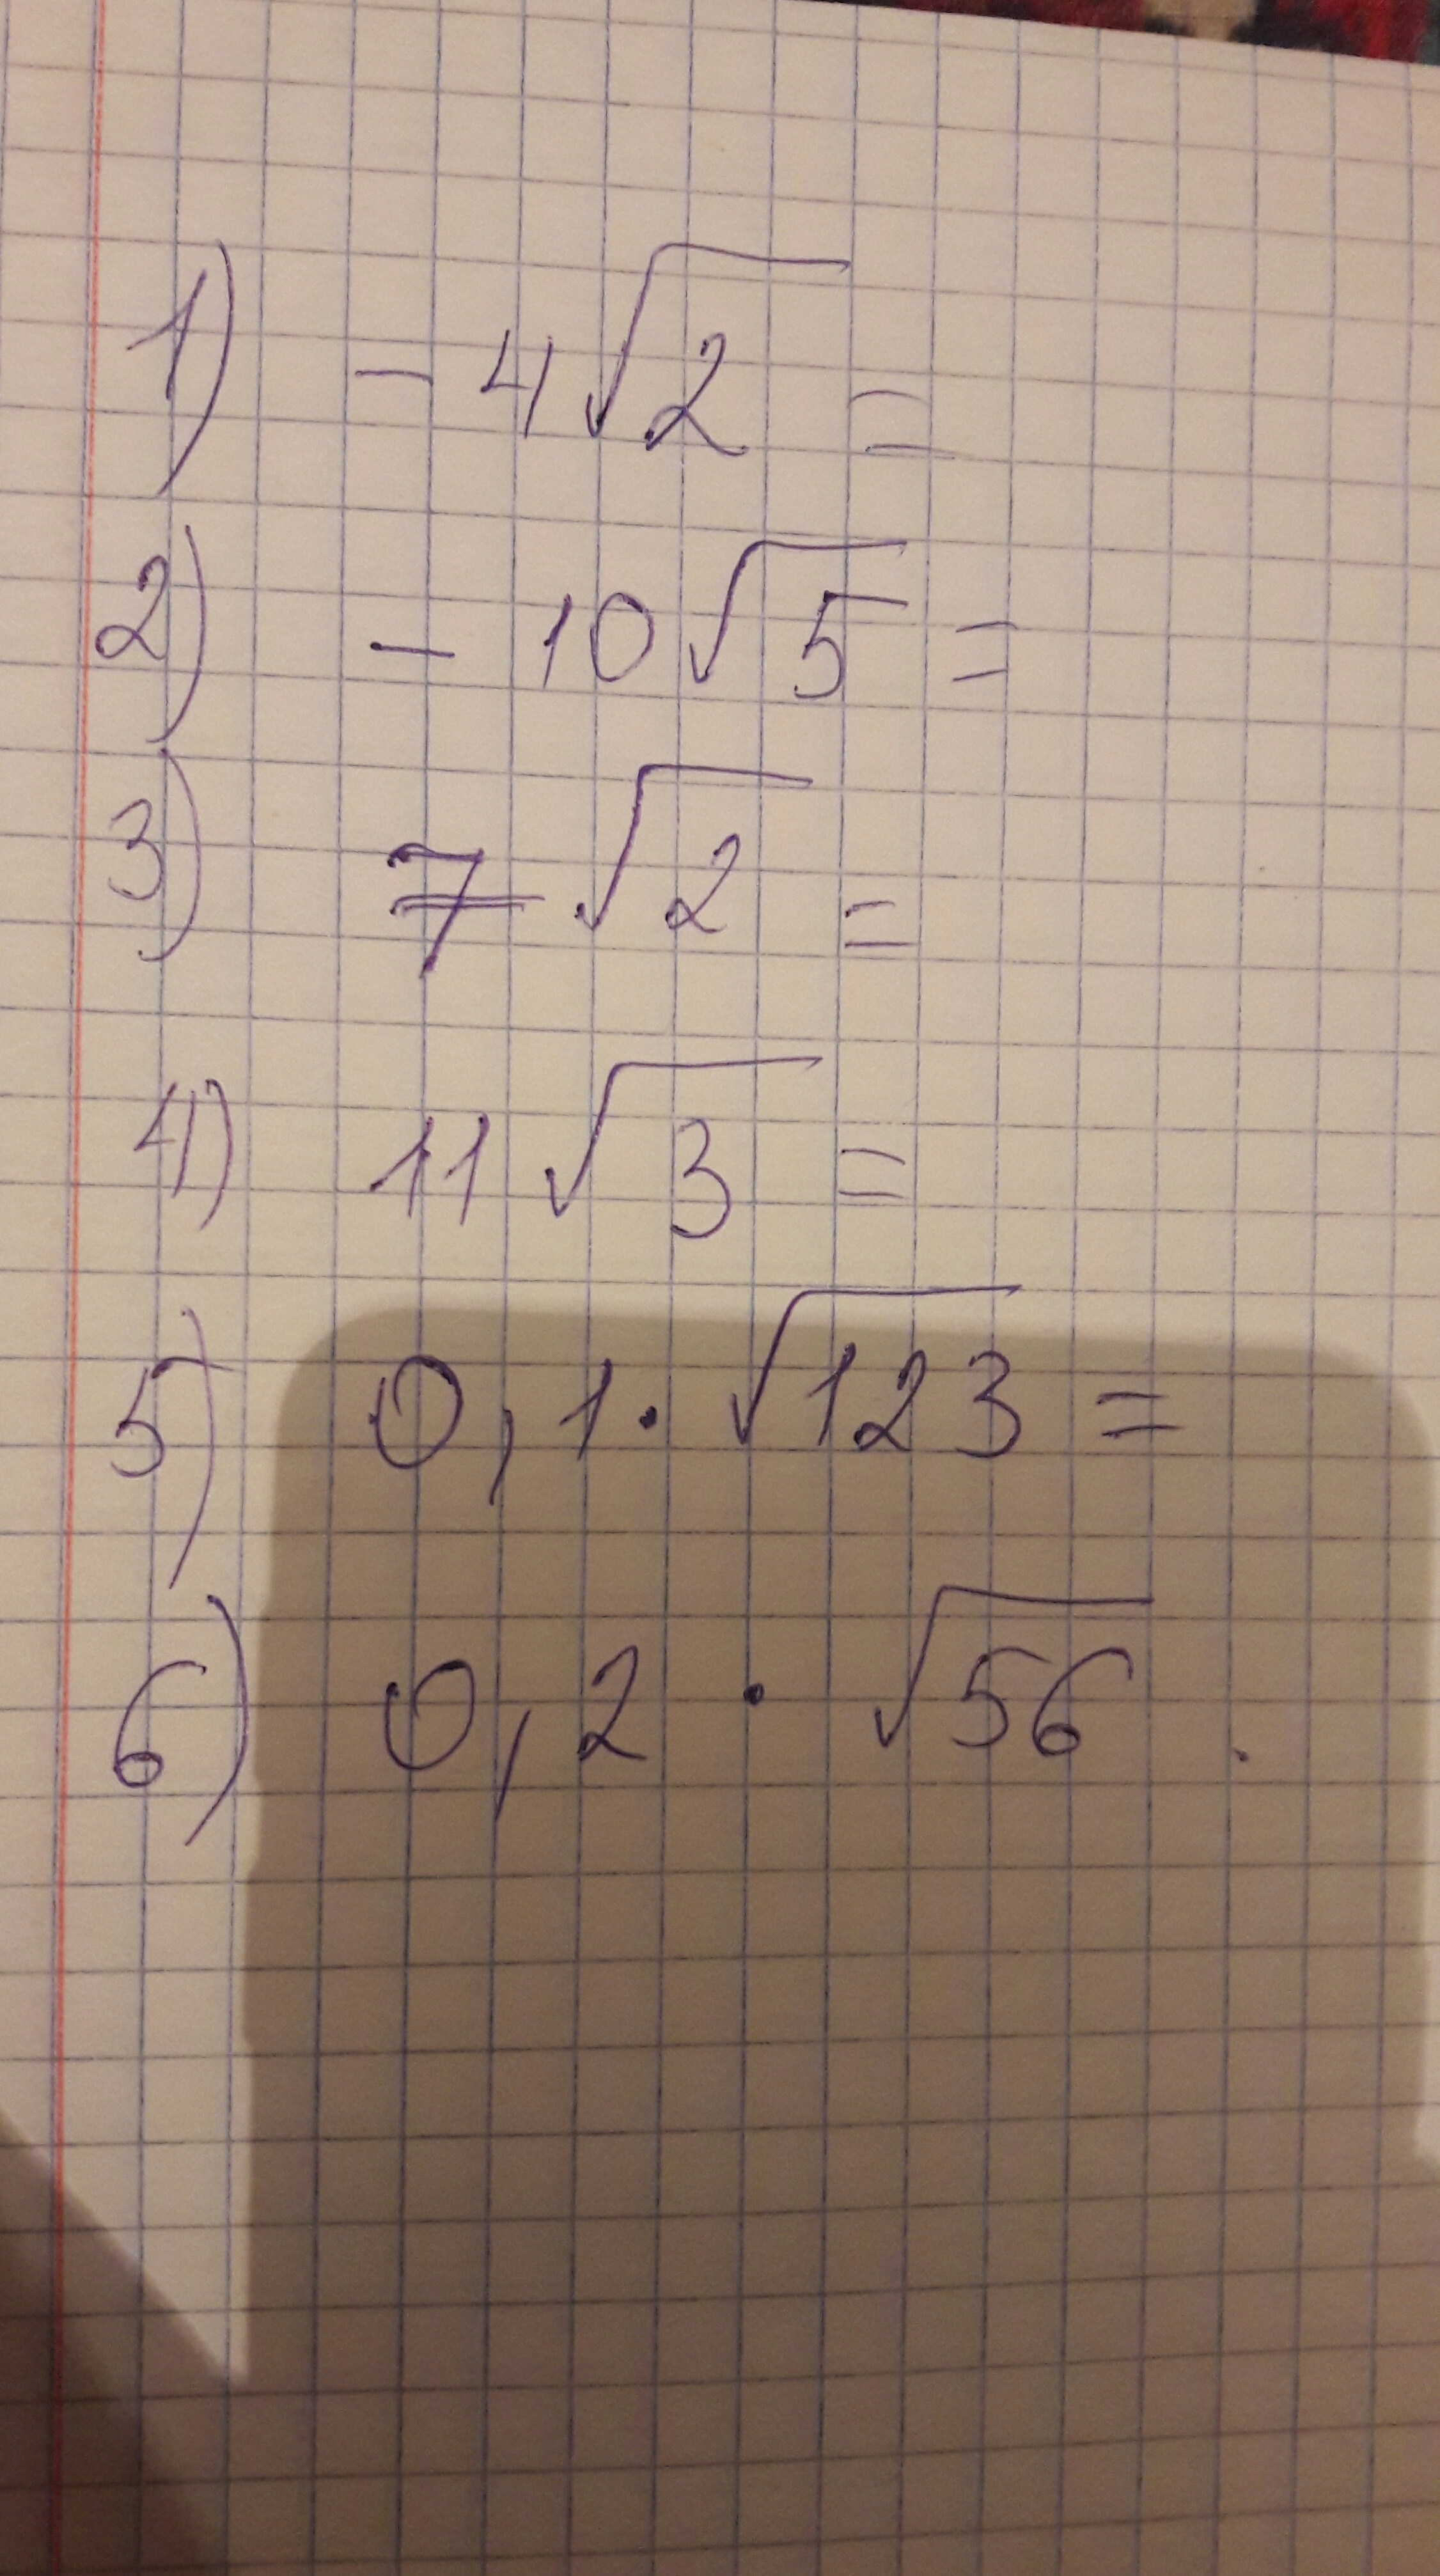 1) - 4√2 =
2) - 10√5 =
3) 7√2 =
4) 11√3 =
5) 0,1·√123 =
6) 0,2 · √56 .